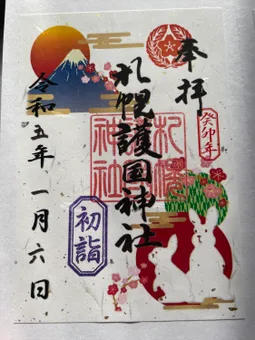 奉拝
癸卯年
札幌護国神社
札幌
神社
初詣
令和五年一月六日